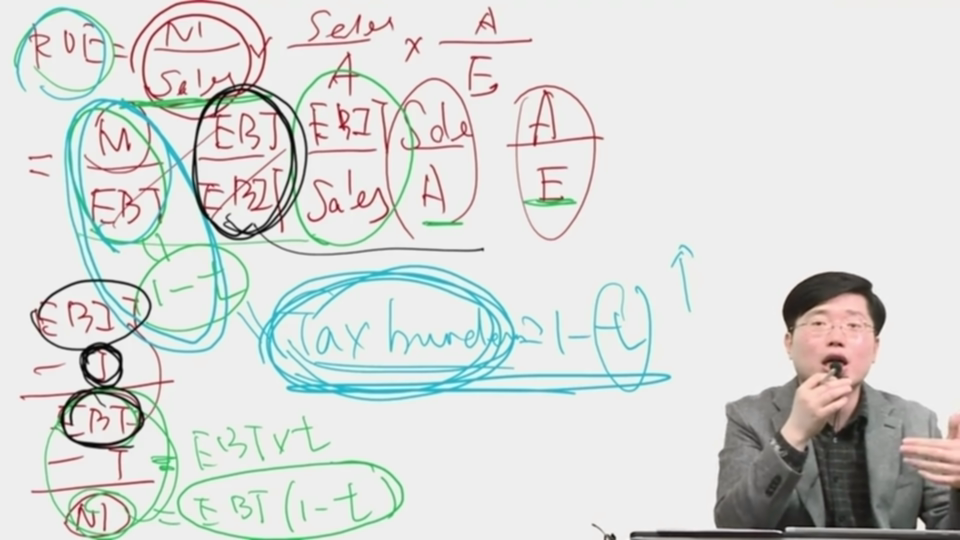 ROE = NI/Sales × Sales/A × A/E
= NI/EBT EBT/EBIT EBIT/Sales Sale/A A/E
1-t
EBIT
Tax burden = 1-t ↑
- I
EBT
- T = EBT×t
NI = EBT(1-t)